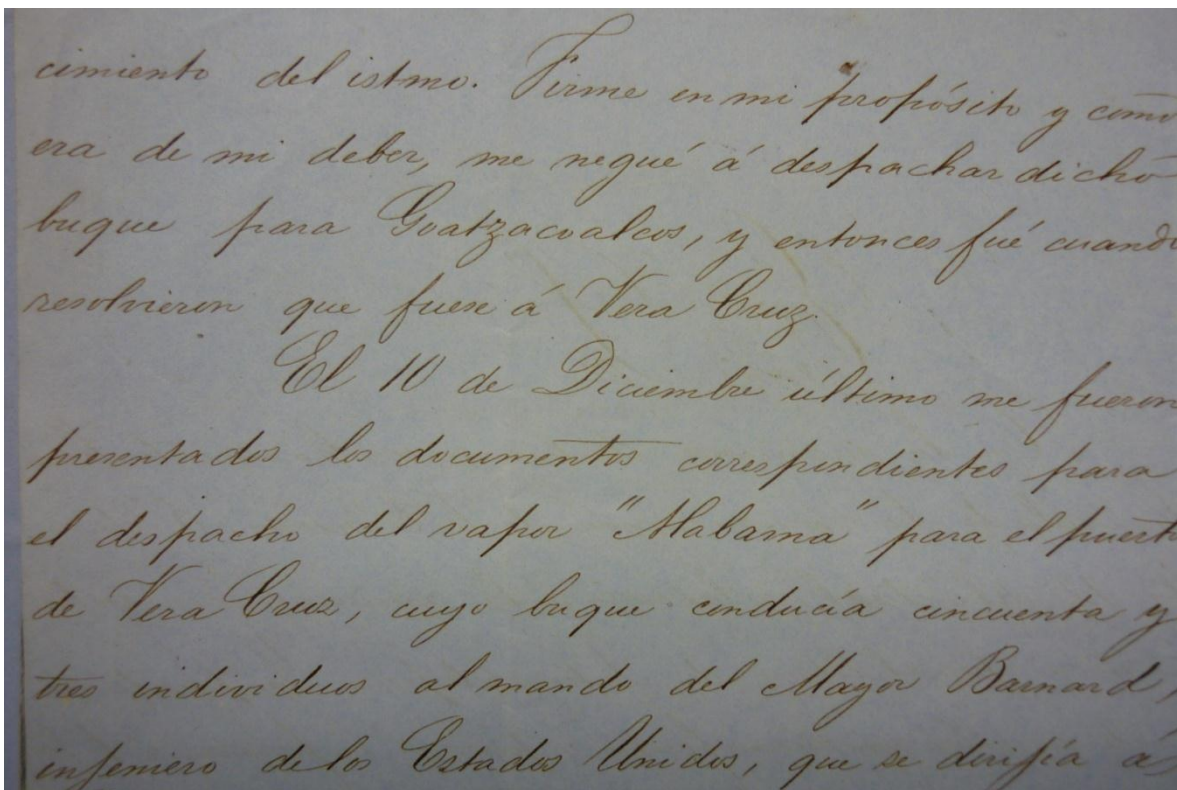 cimiento del istmo. Firme en mi propósito y como
era de mi deber, me negué á despachar dicho
buque para Goatzacoalcos, y entonces fué cuando
resolvieron que fuese á Vera Cruz.
El 10 de Diciembre último me fueron
presentados los documentos correspondientes para
el despacho del vapor "Alabama" para el puerto
de Vera Cruz, cuyo buque conducía cincuenta y
tres individuos al mando del Mayor Barnard,
ingeniero de los Estados Unidos, que se dirigía á